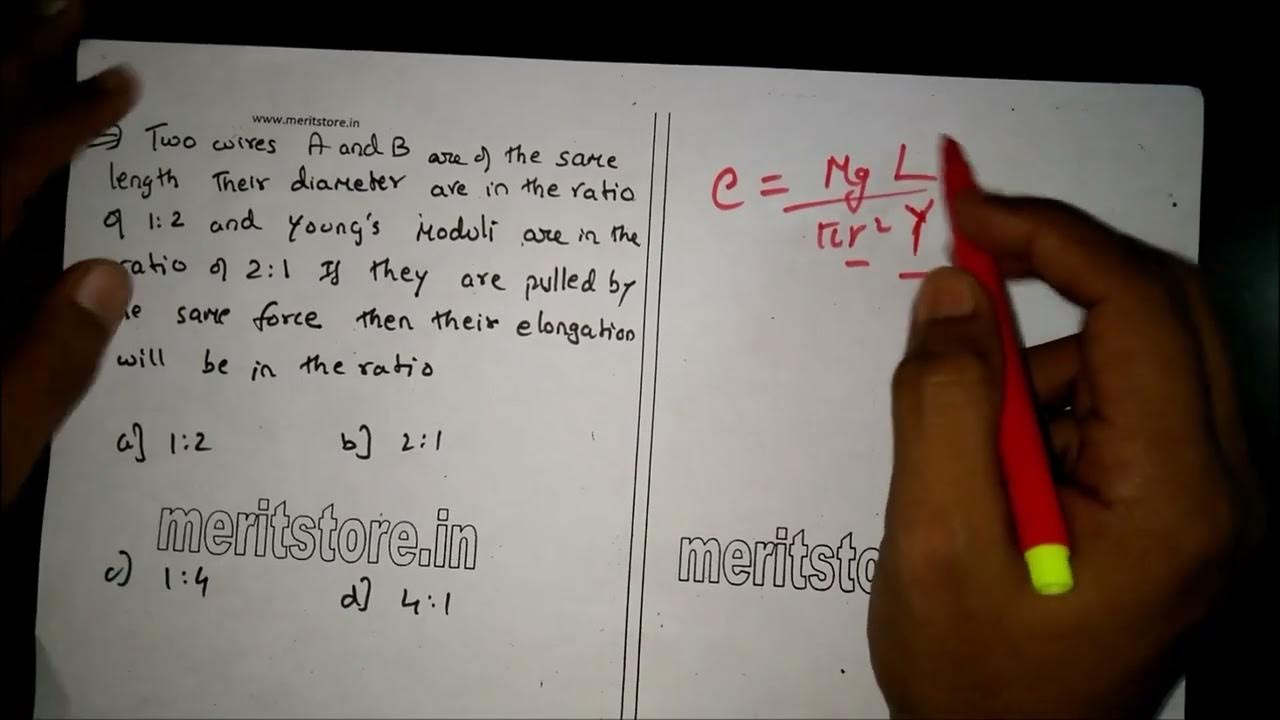 www.meritstore.in
⇒ Two wires A and B are of the same
length Their diameter are in the ratio
of 1:2 and Young's Moduli are in the
ratio of 2:1 If they are pulled by
same force then their elongation
will be in the ratio
a] 1:2 b] 2:1
meritstore.in
c) 1:4 d] 4:1
e = Mg L
πr² Y
meritsto